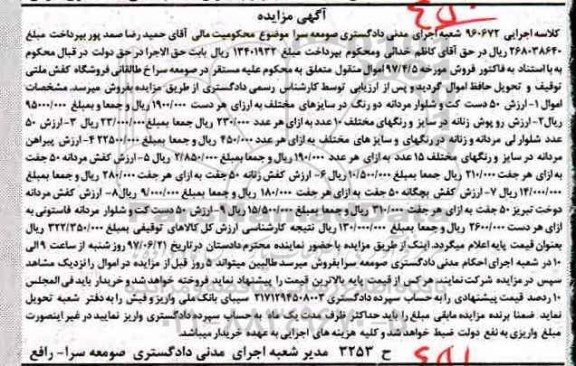 آگهی مزایده
کلاسه اجرایی ۹۶۰۶۷۲ شعبه اجرای مدنی دادگستری صومعه سرا موضوع محکومیت مالی آقای حمید رضا صمد پور بپرداخت مبلغ
۲۶۸۰۳۸۶۴۰ ریال در حق آقای کاظم خدائی ومحکوم بپرداخت مبلغ ۱۳۴۰۱۹۳۲ ریال بابت حق الاجرا در حق دولت در قبال محکوم
به با استناد به فاکتور فروش مورخه ۹۷/۴/۵ اموال منقول متعلق به محکوم علیه مستقر در صومعه سرا خ طالقانی فروشگاه کفش ملتی
توقیف و تحویل حافظ اموال گردید و پس از ارزیابی توسط کارشناس رسمی دادگستری از طریق مزایده بفروش میرسد. مشخصات
اموال ۱- ارزش ۵۰ دست کت و شلوار مردانه دو رنگ در سایزهای مختلف به ارزای هر دست ۱۹۰۰/۰۰۰ ریال و جمعا و بمبلغ ۹۵۰۰۰/۰۰۰
ریال۲- ارزش رو پوش زنانه در سایز و رنگهای مختلف ۱۰ عدد به ازای هر عدد ۲۳۰/۰۰۰ ریال جمعا بمبلغ ۲۳/۰۰۰/۰۰۰ ریال ۳- ارزش ۵۰
عدد شلوار لی مردانه و زنانه در رنگهای و سایز های مختلف به ازای هر عدد ۴۵۰/۰۰۰ ریال و جمعا بمبلغ ۲۲۵۰۰/۰۰۰ ۴- ارزش پیراهن
مردانه در سایز و رنگهای مختلف ۱۵ عدد به ازای هر عدد ۱۹۰/۰۰۰ ریال و جمعا بمبلغ ۲/۸۵۰/۰۰۰ ریال ۵- ارزش کفش مردانه ۵۰ جفت
به ازای هر جفت ۲۱۰/۰۰۰ ریال جمعا بمبلغ ۱۰/۵۰۰/۰۰۰ ریال ۶- ارزش کفش زنانه ۵۰ جفت به ازای هر جفت ۲۸۰/۰۰۰ ریال جمعا بمبلغ
۱۴/۰۰۰/۰۰۰ ریال ۷- ارزش کفش بچگانه ۵۰ جفت به ازای هر جفت ۱۸۰/۰۰۰ ریال و جمعا بمبلغ ۹/۰۰۰/۰۰۰ ریال۸- ارزش کفش مردانه
دوخت تبریز ۵۰ جفت به ازای هر جفت ۳۱۰/۰۰۰ ریال و جمعا بمبلغ ۱۵/۵۰۰/۰۰۰ ریال ۹- ارزش ۵۰ دست کت و شلوار مردانه فاستونی به
ازای هر دست ۲۶۰۰/۰۰۰ ریال و جمعا بمبلغ ۱۳۰/۰۰۰/۰۰۰ ریال نتیجه کارشناسی ارزش کل کالاهای توقیفی بمبلغ ۳۲۲/۳۵۰/۰۰۰ ریال
بعنوان قیمت پایه اعلام میگردد. اینک از طریق مزایده با حضور نماینده محترم دادستان در تاریخ ۹۷/۰۶/۲۱ روز شنبه از ساعت ۹ الی
۱۰ در شعبه اجرای احکام مدنی دادگستری صومعه سرا بفروش میرسد طالبین میتوانند ۵ روز قبل از مزایده در اموال را نزدیک مشاهد
سپس در مزایده شرکت نمایند. هر کس از قیمت پایه بالاترین قیمت را پیشنهاد نماید فروخته خواهد شد و خریدار باید فی المجلس
۱۰ درصد قیمت پیشنهادی را به حساب سپرده دادگستری ۲۱۷۱۲۹۴۵۰۸۰۰۳ سیبای بانک ملی واریز و فیش را به دفتر شعبه تحویل
نماید. ضمنا برنده مزایده مابقی مبلغ را باید حداکثر ظرف مدت یک ماه به حساب سپرده دادگستری واریز نمایید در غیر اینصورت
مبلغ واریزی به نفع دولت ضبط خواهد شد و کلیه هزینه های اجرایی به عهده خریدار میباشد.
ح ۳۲۵۳ مدیر شعبه اجرای مدنی دادگستری صومعه سرا- رافع